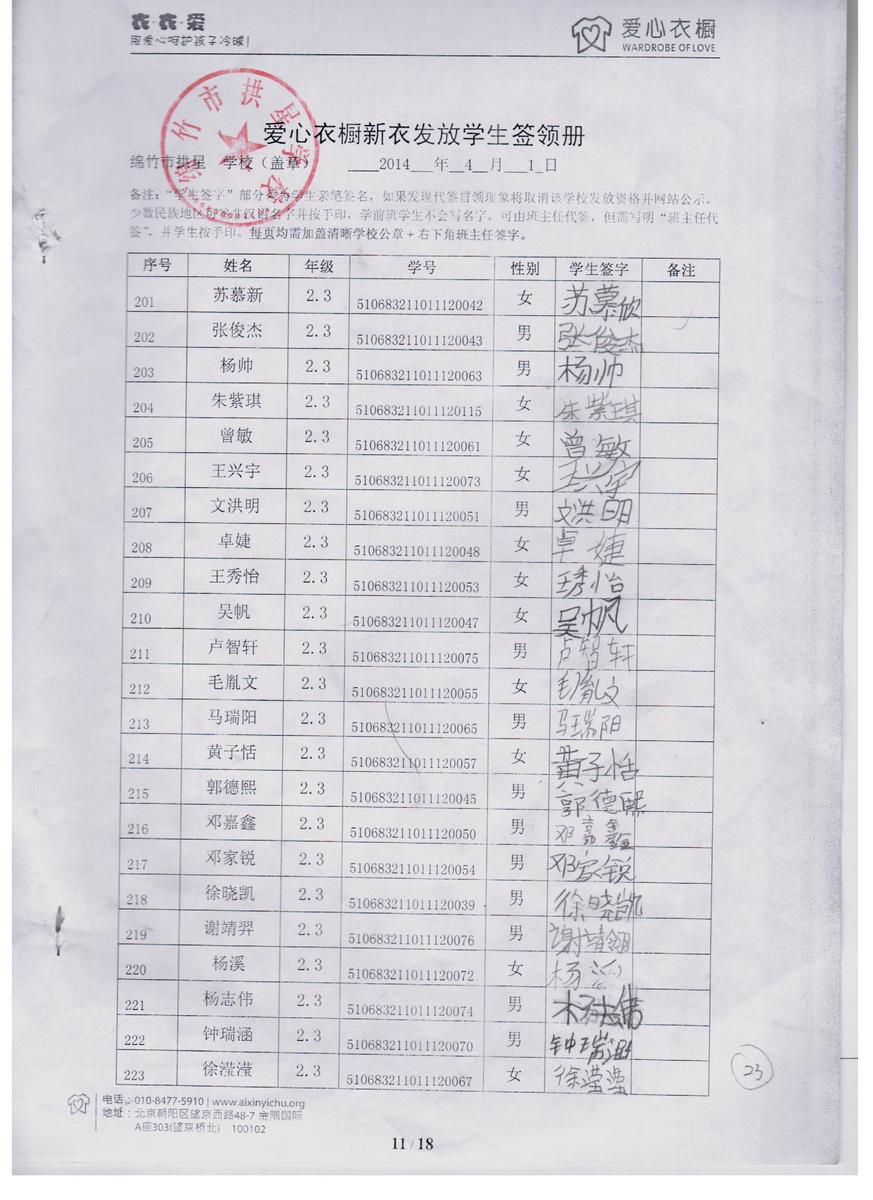 衣·衣·爱
用爱心呵护孩子冷暖!
爱心衣橱
WARDROBE OF LOVE
绵竹市拱星学校
爱心衣橱新衣发放学生签领册
绵竹市拱星 学校（盖章） 2014 年 4 月 1 日
备注：“学生签字”部分须为学生亲笔签名，如果发现代签冒领现象将取消该学校发放资格并网站公示。
少数民族地区可签非汉语名字并按手印，学前班学生不会写名字，可由班主任代签，但需写明“班主任代
签”，并学生按手印。每页均需加盖清晰学校公章+右下角班主任签字。
序号 姓名 年级 学号 性别 学生签字 备注
201 苏慕新 2.3 510683211011120042 女 苏慕欣
202 张俊杰 2.3 510683211011120043 男 张俊杰
203 杨帅 2.3 510683211011120063 男 杨帅
204 朱紫琪 2.3 510683211011120115 女 朱紫琪
205 曾敏 2.3 510683211011120061 女 曾敏
206 王兴宇 2.3 510683211011120073 女 王兴宇
207 文洪明 2.3 510683211011120051 男 文洪明
208 卓婕 2.3 510683211011120048 女 卓婕
209 王秀怡 2.3 510683211011120053 女 王秀怡
210 吴帆 2.3 510683211011120047 女 吴帆
211 卢智轩 2.3 510683211011120075 男 卢智轩
212 毛胤文 2.3 510683211011120055 女 毛胤文
213 马瑞阳 2.3 510683211011120065 男 马瑞阳
214 黄子恬 2.3 510683211011120057 女 黄子恬
215 郭德熙 2.3 510683211011120045 男 郭德熙
216 邓嘉鑫 2.3 510683211011120050 男 邓嘉鑫
217 邓家锐 2.3 510683211011120054 男 邓家锐
218 徐晓凯 2.3 510683211011120039 男 徐晓凯
219 谢靖羿 2.3 510683211011120076 男 谢靖翊
220 杨溪 2.3 510683211011120072 女 杨
221 杨志伟 2.3 510683211011120074 男 杨志伟
222 钟瑞涵 2.3 510683211011120070 男 钟瑞涵
223 徐滢滢 2.3 510683211011120067 女 徐滢滢
23
电话：010-8477-5910 | www.aixinyichu.org
地址：北京朝阳区望京西路48-7 金隅国际
A座303(望京桥北) · 100102
11 / 18